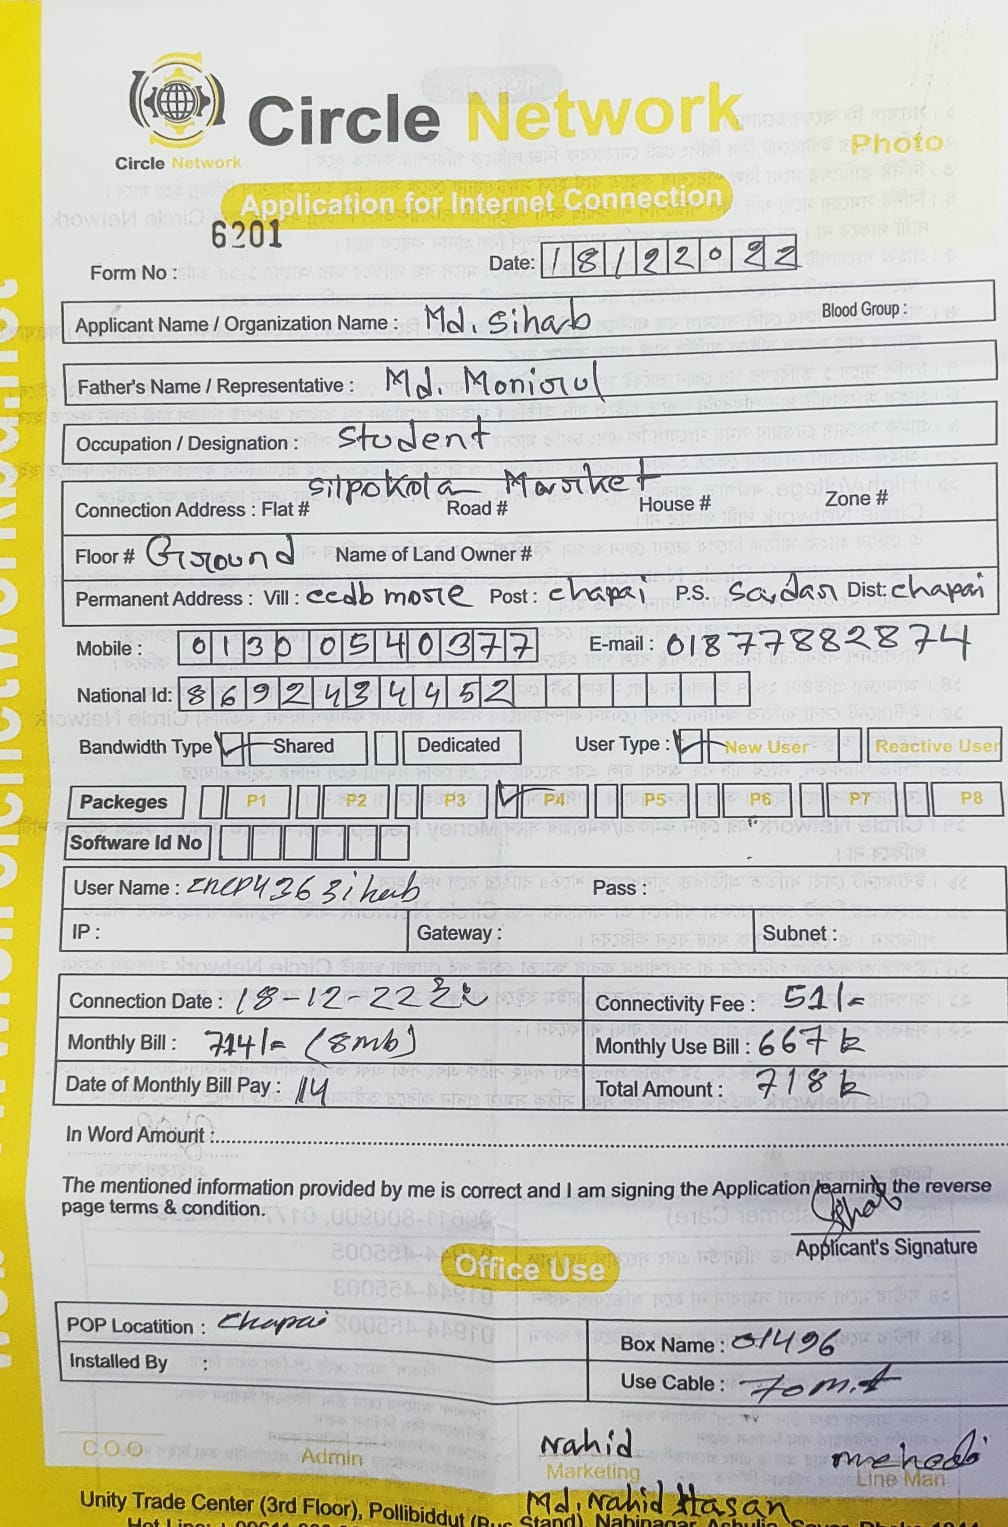 Circle Network
Circle Network
Photo
Application for Internet Connection
6201
Form No :
Date: 18122022
Applicant Name / Organization Name : Md. Sihab
Blood Group :
Father's Name / Representative : Md. Monirul
Occupation / Designation : Student
Silpokola Market
Connection Address : Flat # Road # House # Zone #
Floor # Ground Name of Land Owner #
Permanent Address : Vill : ccdb more Post : chapai P.S. Sardar Dist: chapai
Mobile : 01300510377 E-mail : 01877882874
National Id: 8692434452
Bandwidth Type Shared Dedicated User Type : New User Reactive User
Packeges P1 P2 P3 P4 P5 P6 P7 P8
Software Id No
User Name : Pass :
IP : Gateway : Subnet :
Connection Date : 18-12-22 Connectivity Fee : 51/=
Monthly Bill : 714/= (8mb) Monthly Use Bill : 667
Date of Monthly Bill Pay : 14 Total Amount : 718
In Word Amount :
The mentioned information provided by me is correct and I am signing the Application learning the reverse
page terms & condition.
Applicant's Signature
Office Use
POP Locatition : Chapai
Box Name : 01496
Installed By :
Use Cable : 70 m.t
C.O.O Admin Nahid Marketing mehedi Line Man
Md. Nahid Hasan
Unity Trade Center (3rd Floor), Pollibiddut (Bus Stand), Nabinagar